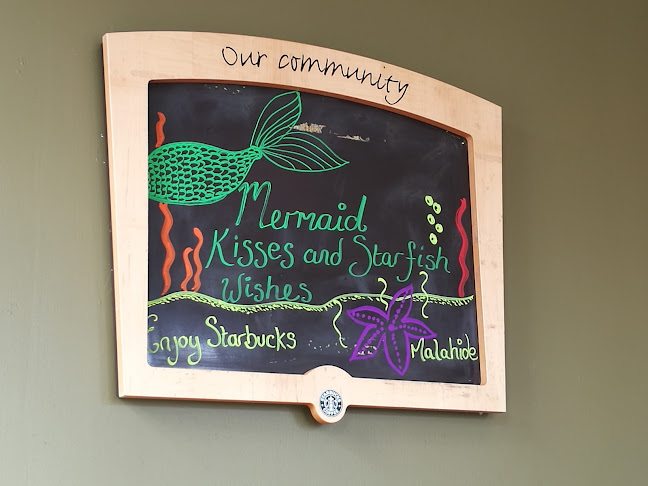 Our community
Mermaid
Kisses and Starfish
Wishes
Enjoy Starbucks
Malahide